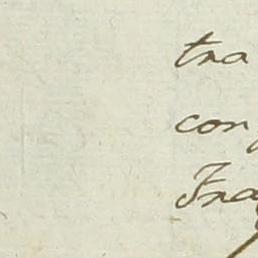 tra
con
Fra